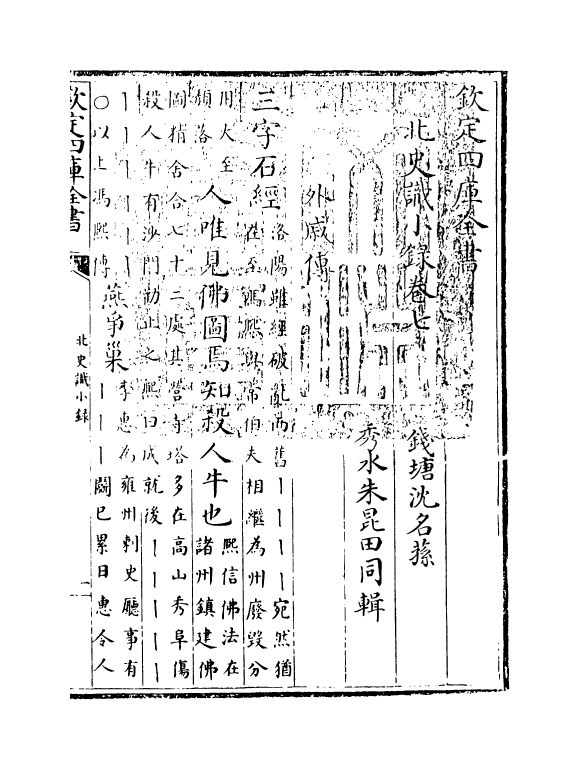 欽定四庫全書
北史識小錄卷七
錢塘沈名蓀
秀水朱昆田同輯
外戚傳
三字石經
洛陽雖經破亂而舊丨丨丨丨宛然猶
在至馮熙與常伯夫相繼為州廢毀分
用大至
頹落
人唯見佛圖焉知殺人牛也
熙信佛法在
諸州鎮建佛
圖精舍合七十二處其營寺塔多在高山秀阜傷
殺人牛有沙門勸止之熙曰成就後丨丨丨丨丨丨
丨丨丨丨丨丨
〇以上馮熙傳
燕爭巢
李惠為雍州刺史廳事有
丨丨丨鬭已累日惠令人
欽定四庫全書
北史識小錄
一